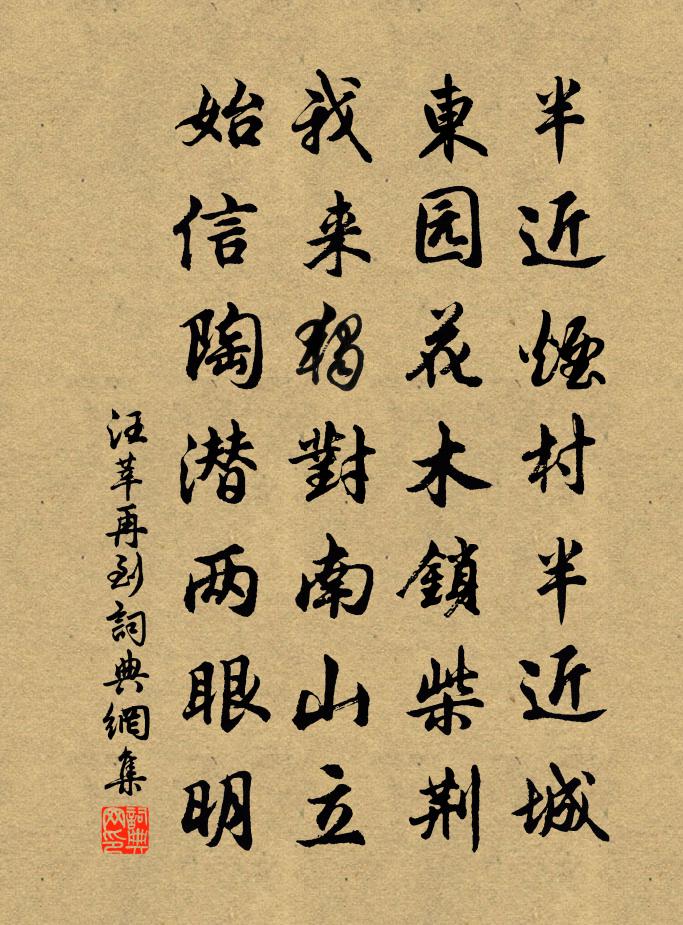 半近煙村半近城
東园花木鎖柴荆
我来獨對南山立
始信陶潜两眼明
汪莘再到詞典網集
詞典
网印